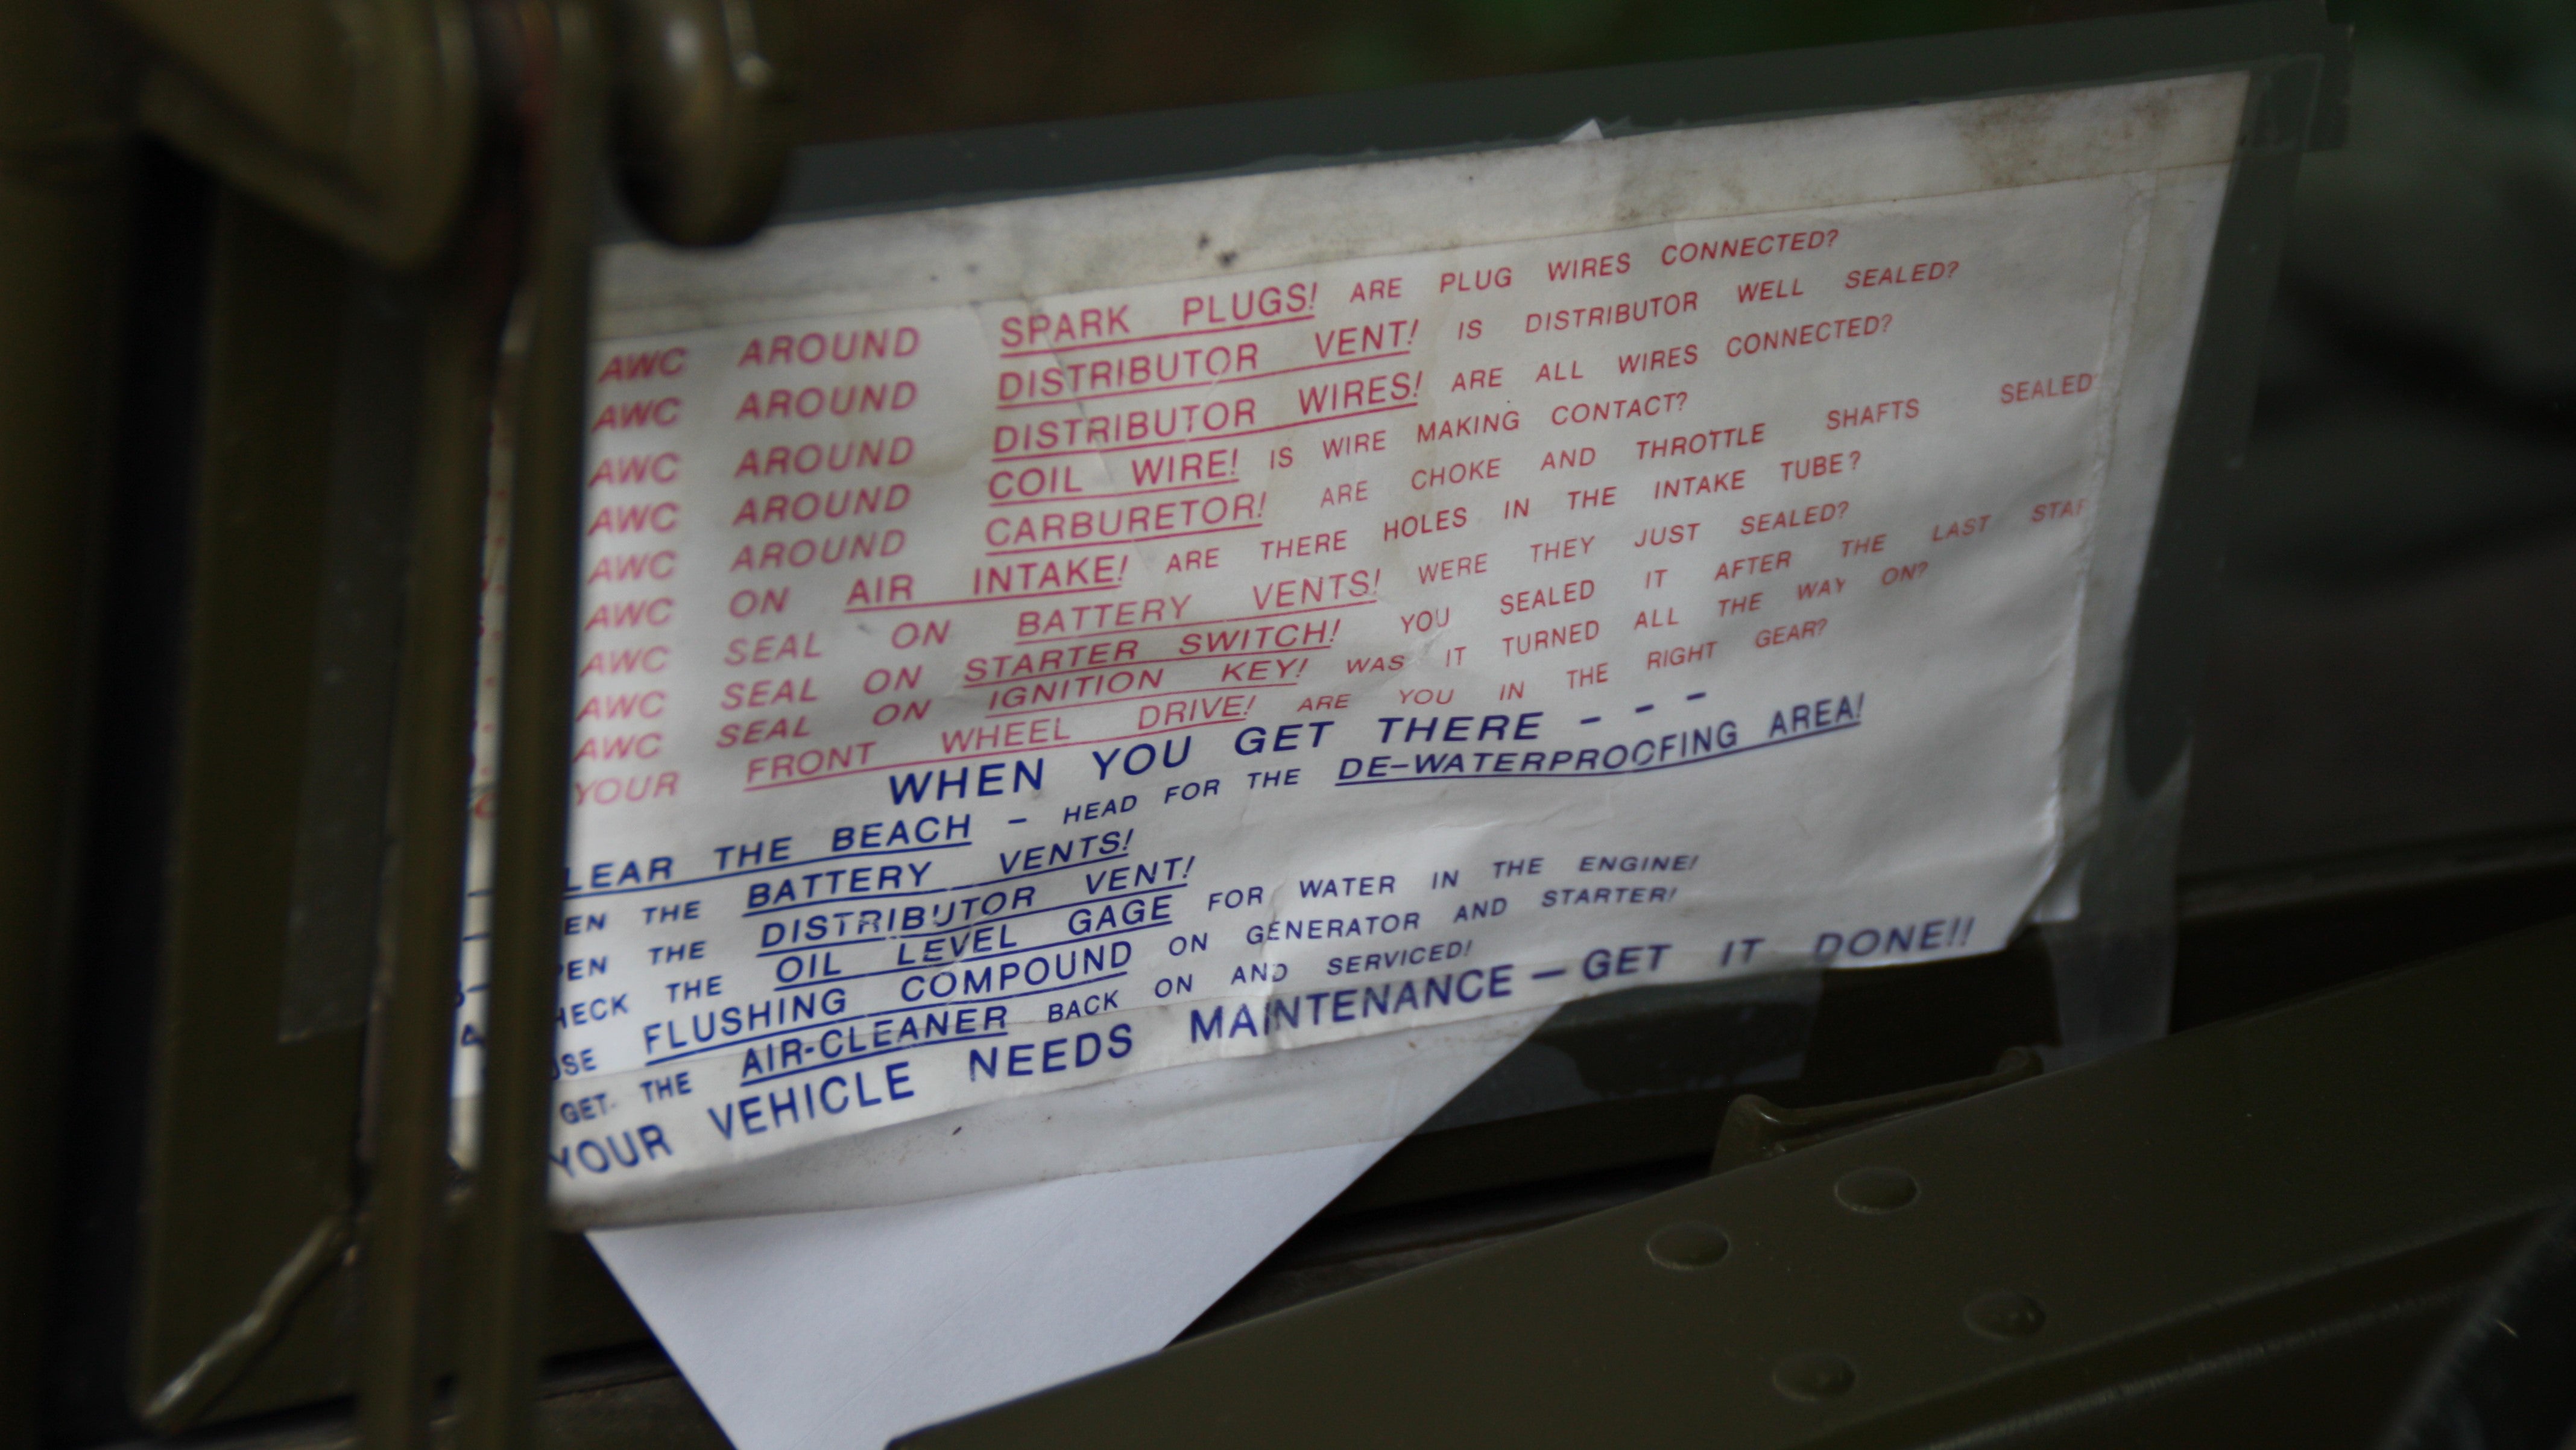 AWC AROUND SPARK PLUGS! ARE PLUG WIRES CONNECTED?
AWC AROUND DISTRIBUTOR VENT! IS DISTRIBUTOR WELL SEALED?
AWC AROUND DISTRIBUTOR WIRES! ARE ALL WIRES CONNECTED?
AWC AROUND COIL WIRE! IS WIRE MAKING CONTACT?
AWC AROUND CARBURETOR! ARE CHOKE AND THROTTLE SHAFTS SEALED
AWC ON AIR INTAKE! ARE THERE HOLES IN THE INTAKE TUBE?
AWC SEAL ON BATTERY VENTS! WERE THEY JUST SEALED?
AWC SEAL ON STARTER SWITCH! YOU SEALED IT AFTER THE LAST STAR
AWC SEAL ON IGNITION KEY! WAS IT TURNED ALL THE WAY ON?
YOUR FRONT WHEEL DRIVE! ARE YOU IN THE RIGHT GEAR?
WHEN YOU GET THERE - - -
LEAR THE BEACH - HEAD FOR THE DE-WATERPROOFING AREA!
EN THE BATTERY VENTS!
PEN THE DISTRIBUTOR VENT!
HECK THE OIL LEVEL GAGE FOR WATER IN THE ENGINE!
USE FLUSHING COMPOUND ON GENERATOR AND STARTER!
GET THE AIR-CLEANER BACK ON AND SERVICED!
YOUR VEHICLE NEEDS MAINTENANCE — GET IT DONE!!